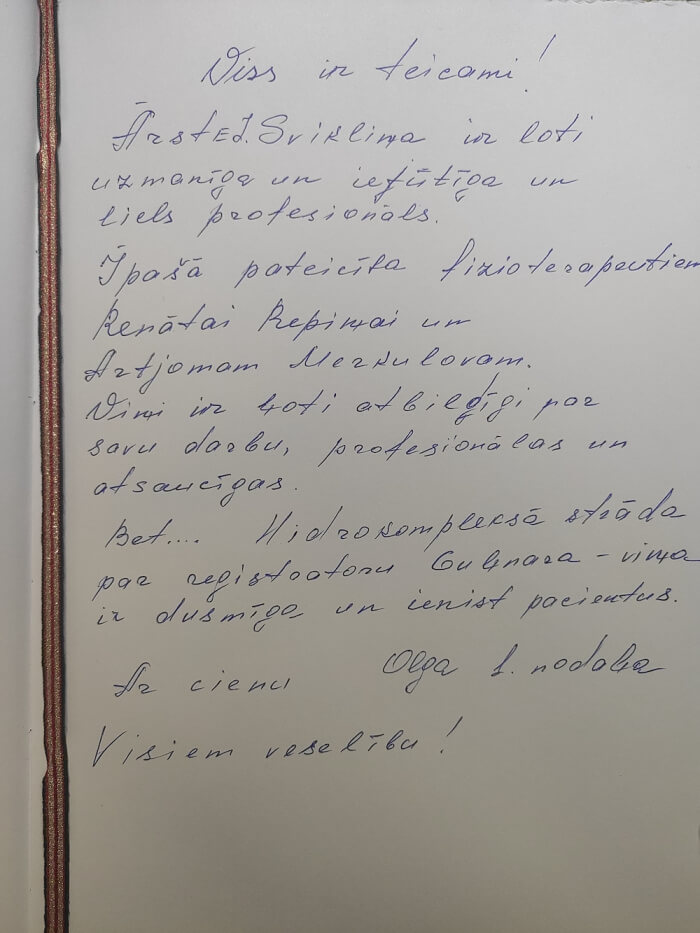 Viss ir teicami!
Ārste J. Svikliņa ir ļoti
uzmanīga un iejūtīga un
liels profesionāls.
Īpašā pateicība fizioterapeutiem
Renātai Repiņai un
Artjomam Merkulovam.
Viņi ir ļoti atbildīgi par
savu darbu, profesionālas un
atsaucīgas.
Bet.... Hidrokompleksā strāda
par registratoru Gulnara - viņa
ir dusmīga un ienist pacientus.
Ar cieņu Olga 1. nodaļa
Visiem veselību!